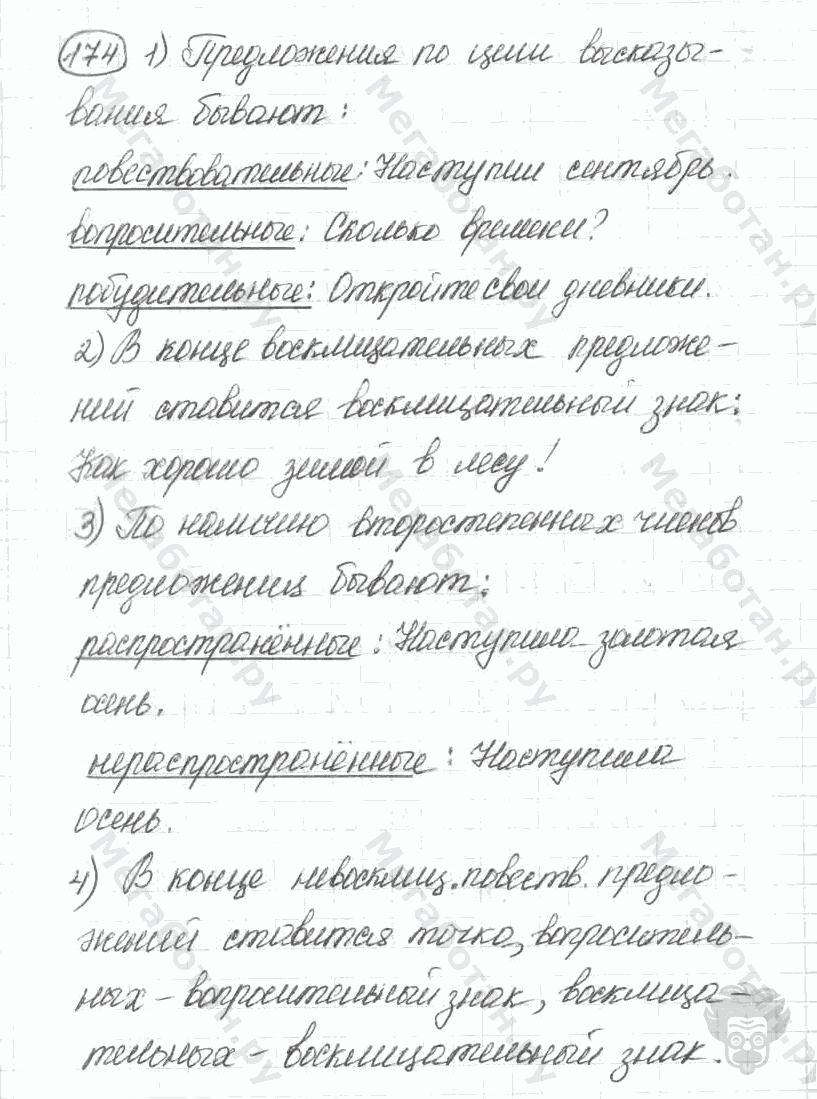 174 1) Предложения по цели высказы-
вания бывают:
повествовательные: Наступил сентябрь.
вопросительные: Сколько времени?
побудительные: Откройте свои дневники.
2) В конце восклицательных предложе-
ний ставится восклицательный знак:
Как хорошо зимой в лесу!
3) По наличию второстепенных членов
предложения бывают:
распространённые: Наступила золотая
осень.
нераспространённые: Наступила
осень.
4) В конце невосклиц. повеств. предло-
жений ставится точка, вопроситель-
ных - вопросительный знак, восклица-
тельных - восклицательный знак.
Мегаботан.ру